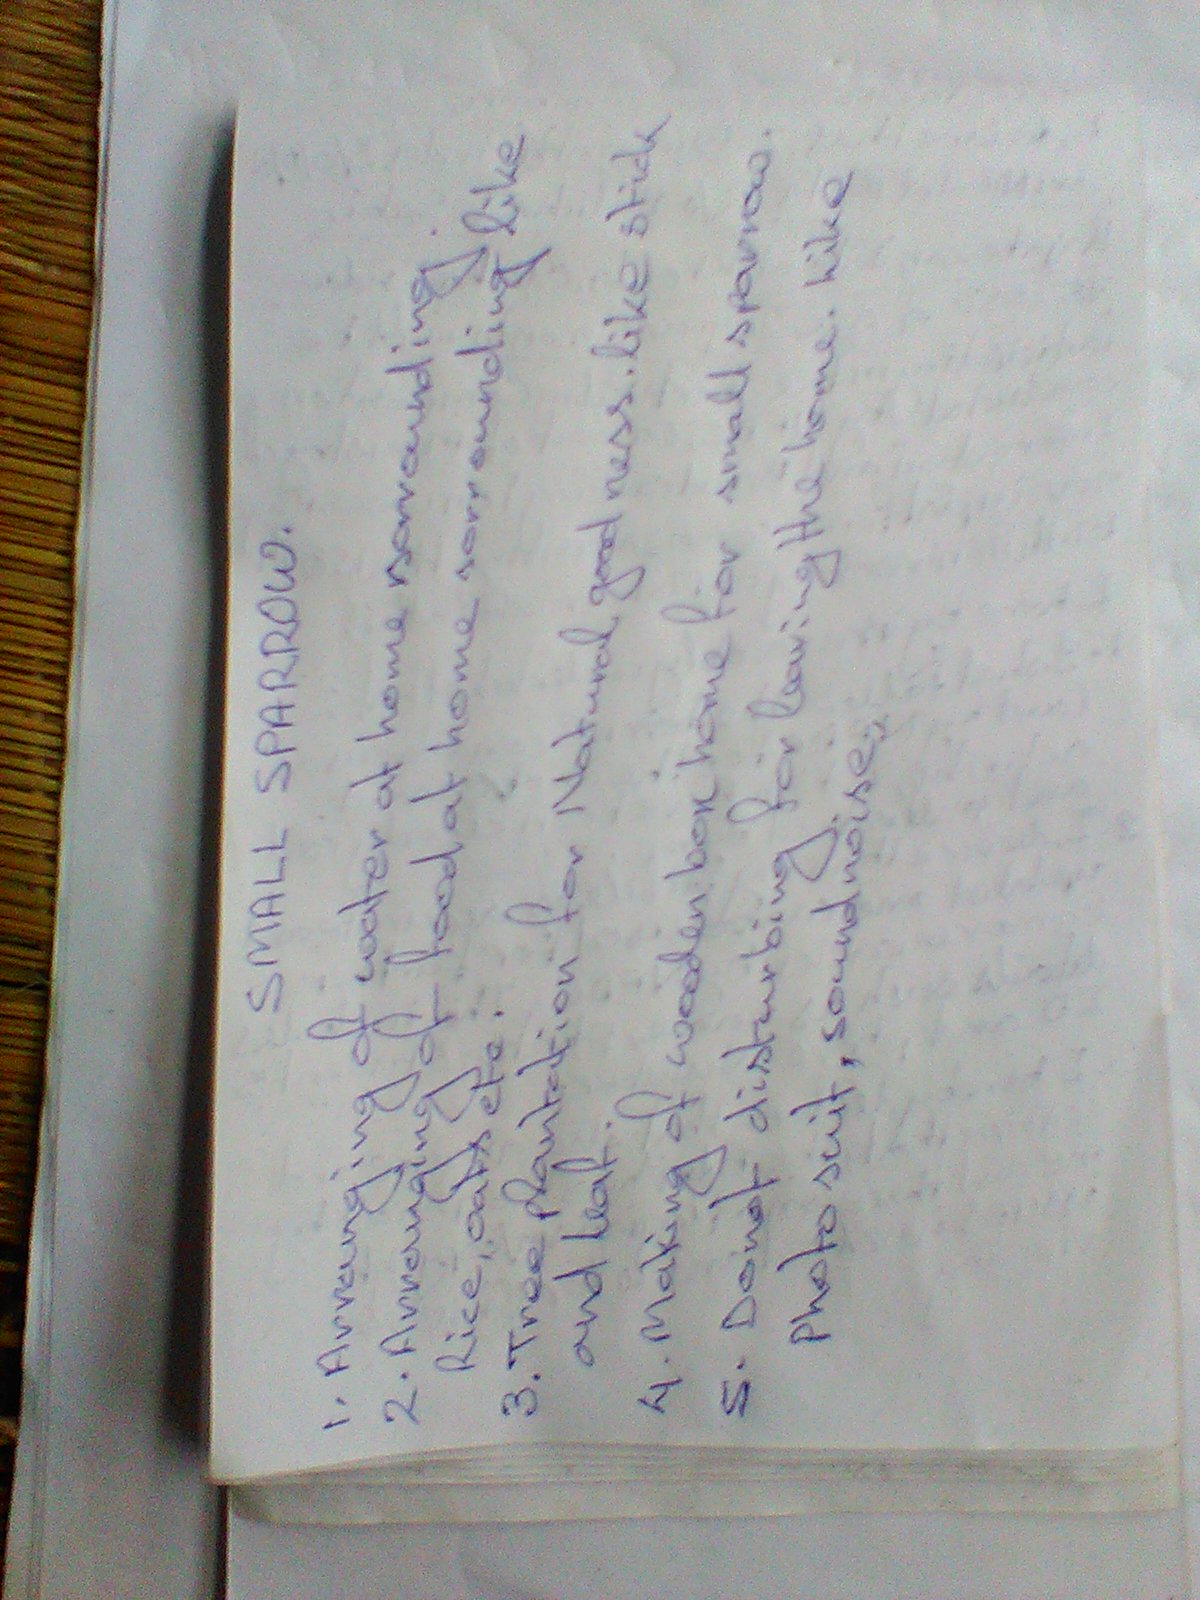 SMALL SPARROW.
1. Arranging of water at home sorrounding.
2. Arranging of food at home sorrounding like
Rice, oats etc.
3. Tree plantation for Natural goodness. like stick
and leaf.
4. Making of wooden box home for small sparrow.
5. Donot disturbing for leaving the home. like
photo suit, sound noise,